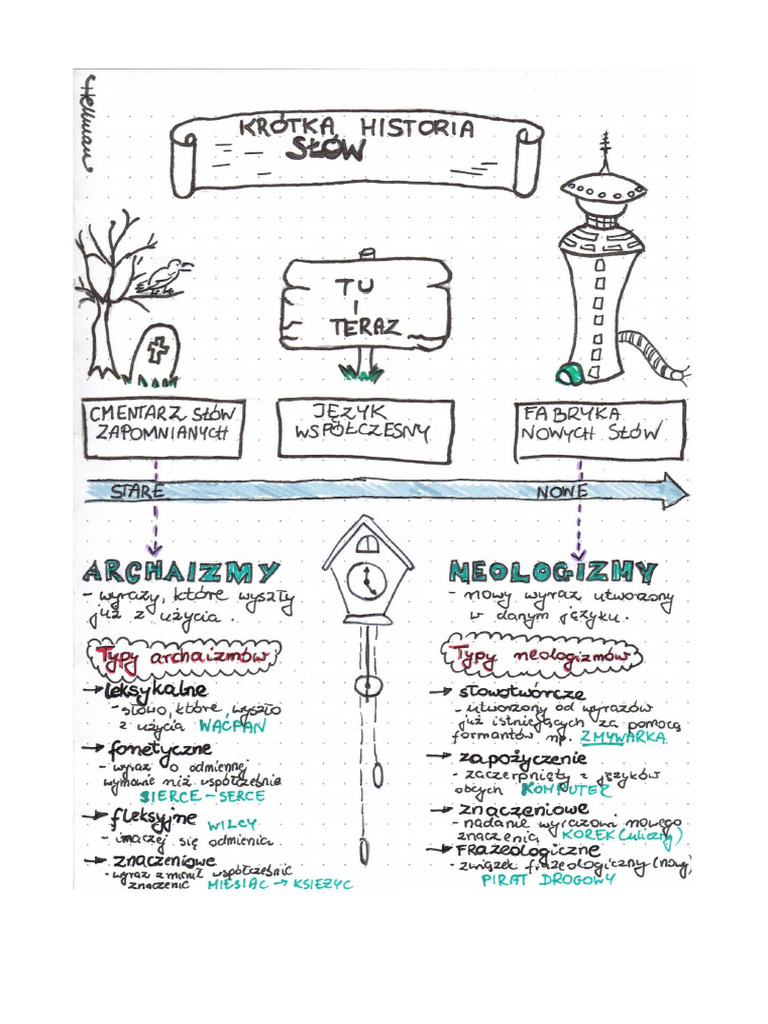 Hellman
KRÓTKA HISTORIA
SŁÓW
TU
I
TERAZ
CMENTARZ SŁÓW
ZAPOMNIANYCH
JĘZYK
WSPÓŁCZESNY
FABRYKA
NOWYCH SŁÓW
STARE
NOWE
ARCHAIZMY
- wyrazy, które wyszły
już z użycia.
Typy archaizmów
→ leksykalne
- słowo, które wyszło
z użycia WAĆPAN
→ fonetyczne
- wyraz o odmiennej
wymowie niż współcześnie
SIERCE – SERCE
→ fleksyjne WILCY
- inaczej się odmienia
→ znaczeniowe
- wyraz zmienił współcześnie
znaczenie MIESIĄC → KSIĘŻYC
NEOLOGIZMY
- nowy wyraz utworzony
w danym języku.
Typy neologizmów
→ słowotwórcze
- utworzony od wyrazów
już istniejących za pomocą
formantów np. ZMYWARKA
→ zapożyczenie
- zaczerpnięty z języków
obcych KOMPUTER
→ znaczeniowe
- nadanie wyrazowi nowego
znaczenia KOREK (uliczny)
→ FRAZEOLOGICZNE
- związek frazeologiczny (nowy)
PIRAT DROGOWY